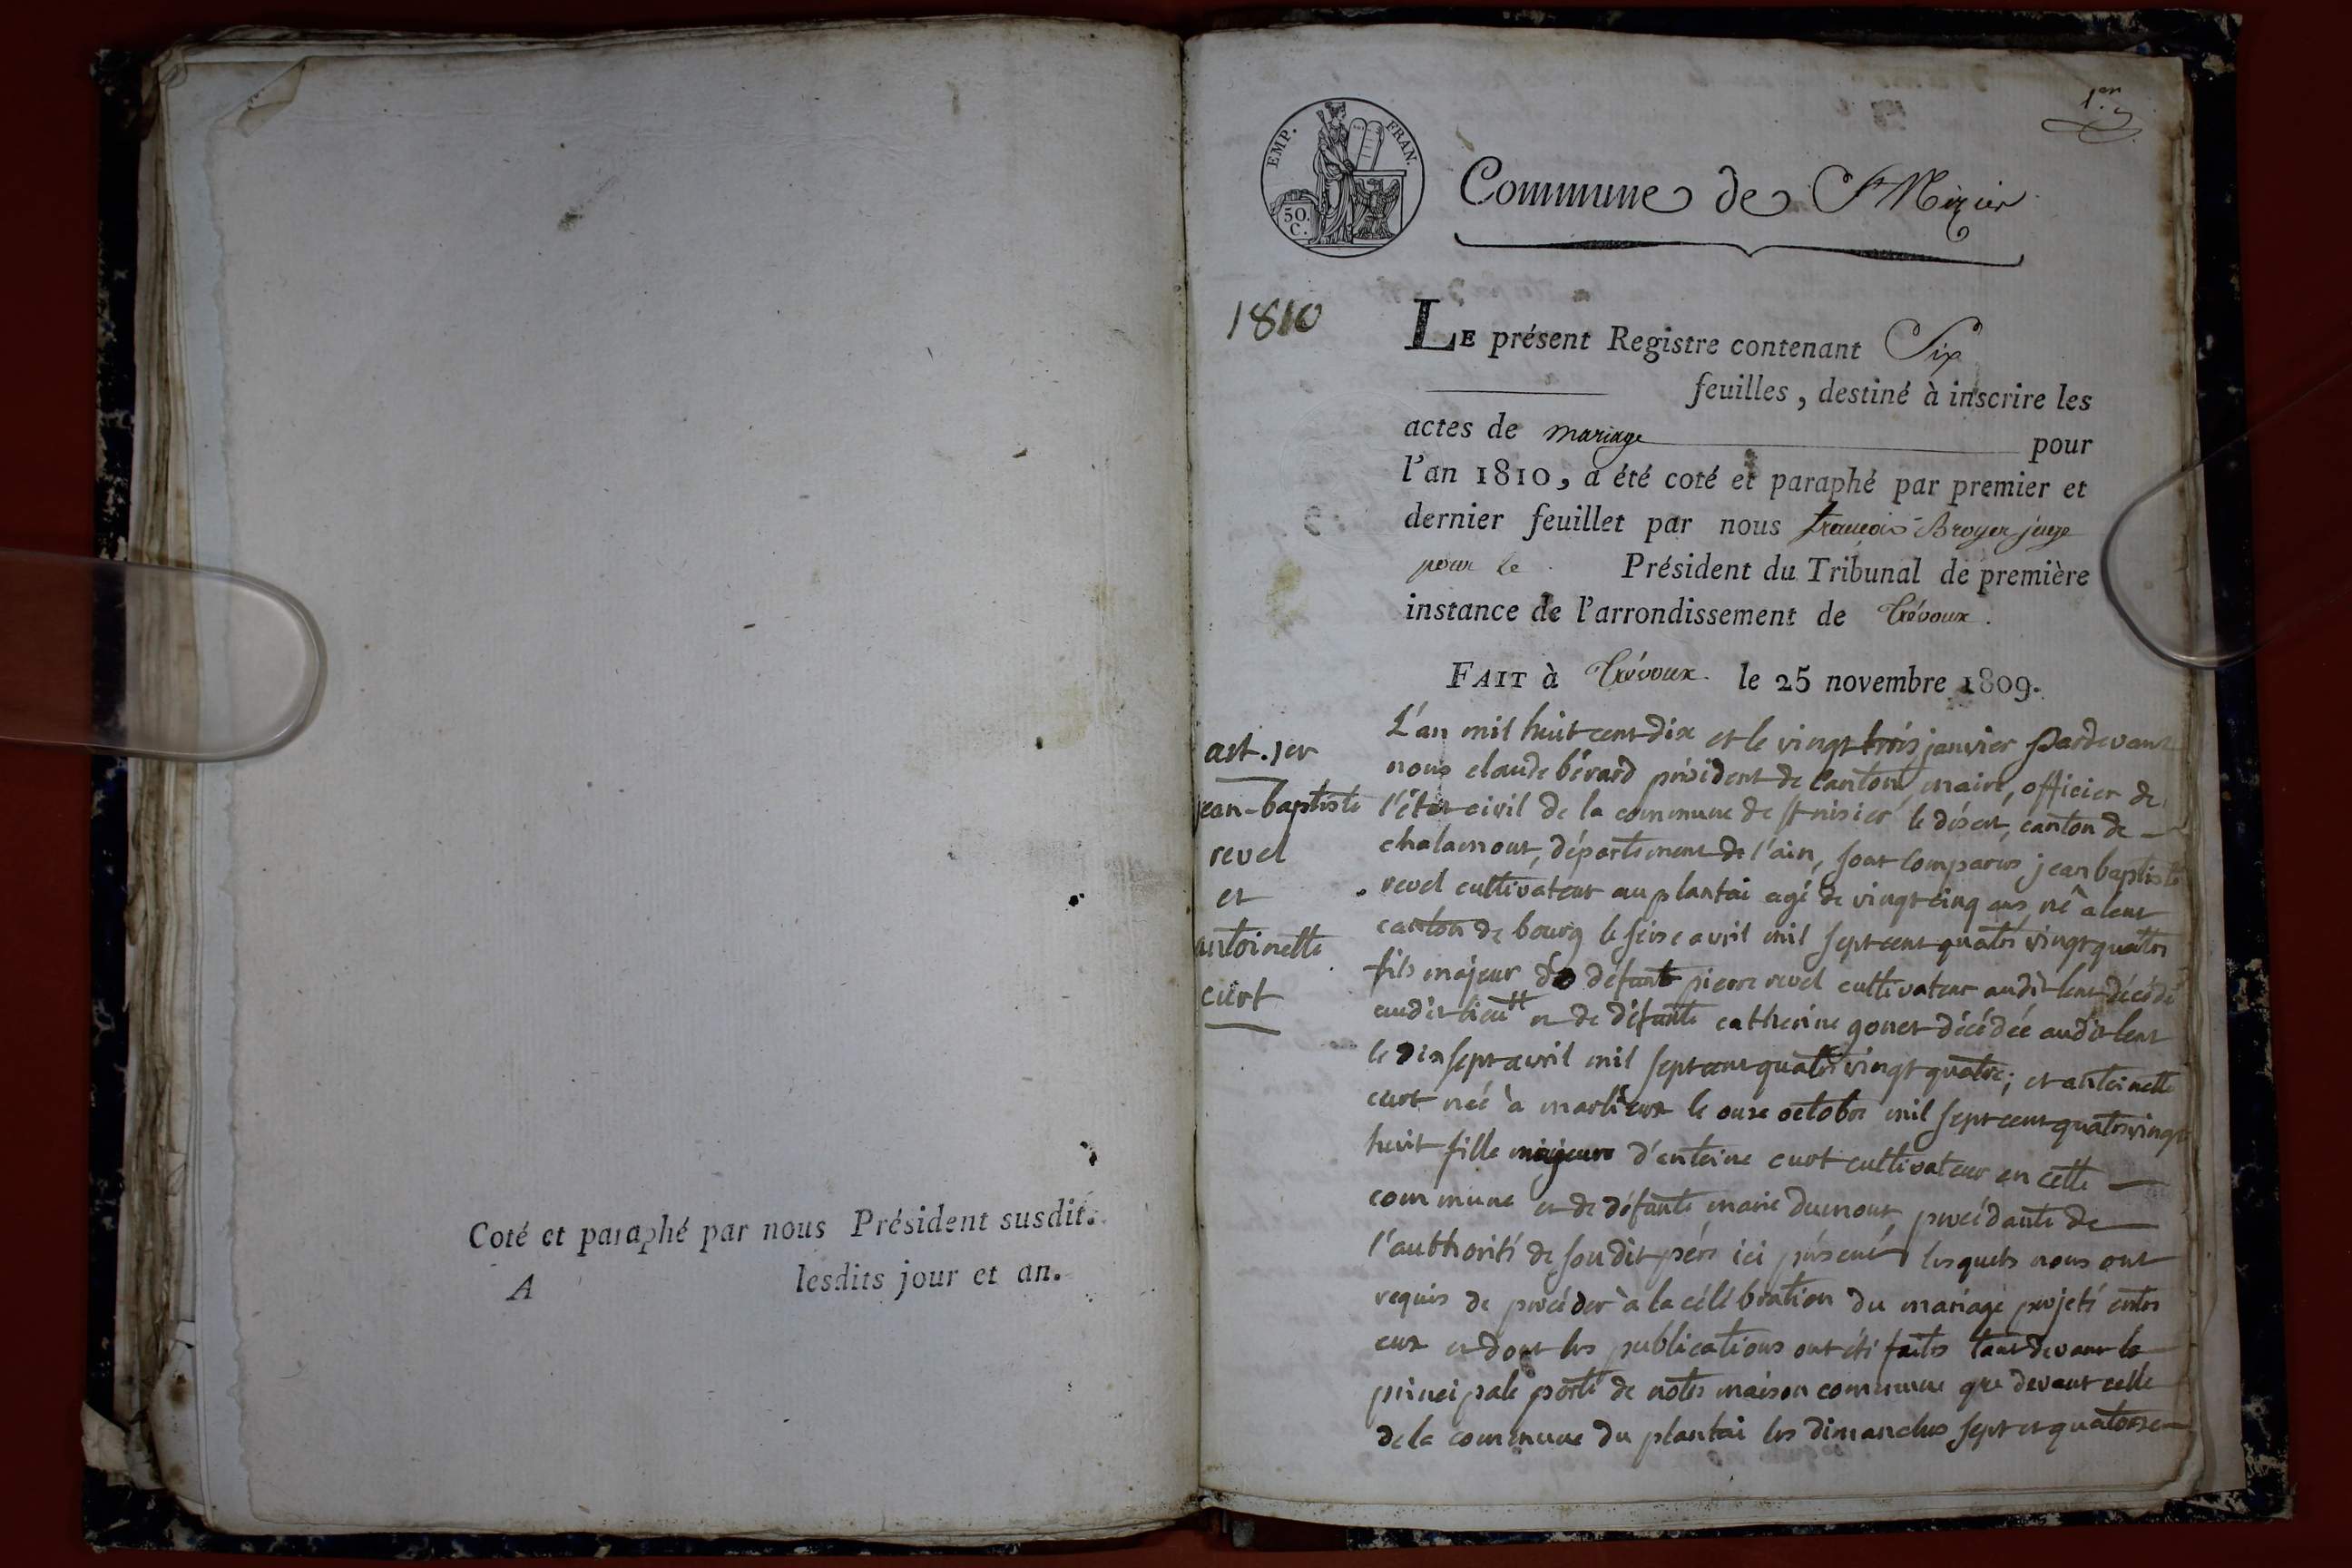 Coté et paraphé par nous Président susdit.
A lesdits jour et an.
1.er
EMP. FRAN.
50.
C.
Commune de St Nizier
1810
LE présent Registre contenant Six
feuilles, destiné à inscrire les
actes de mariage pour
l'an 1810, a été coté et paraphé par premier et
dernier feuillet par nous françois Broyer juge
pour le Président du Tribunal de première
instance de l'arrondissement de Trévoux.
FAIT à Trévoux. le 25 novembre 1809.
art. 1er
jean-baptiste
revel
et
antoinette
curt
L'an mil huit cent dix et le vingt trois janvier pardevant
nous claude bérard président de canton, maire, officier de
l'état civil de la commune de st nisier le désert, canton de
chalamont, département de l'ain, sont comparus jean baptiste
revel cultivateur au plantai agé de vingt cinq ans, né a lent
canton de bourg le seise avril mil sept cent quatre vingt quatre
fils majeur de défunt pierre revel cultivateur audit lent décédé
audit lieu et de défunte catherine gonet décédée audit lent
le dix sept avril mil sept cent quatre vingt quatre; et antoinette
curt née à marlieux le onze octobre mil sept cent quatre vingt
huit fille majeure d'antoine curt cultivateur en cette
commune et de défunte marie dumont, procédante de
l'authorité de son dit père ici présent lesquels nous ont
requis de procéder à la célébration du mariage projeté entre
eux et dont les publications ont été faites tant devant la
principale porte de notre maison commune que devant celle
de la commune du plantai les dimanches sept et quatorze